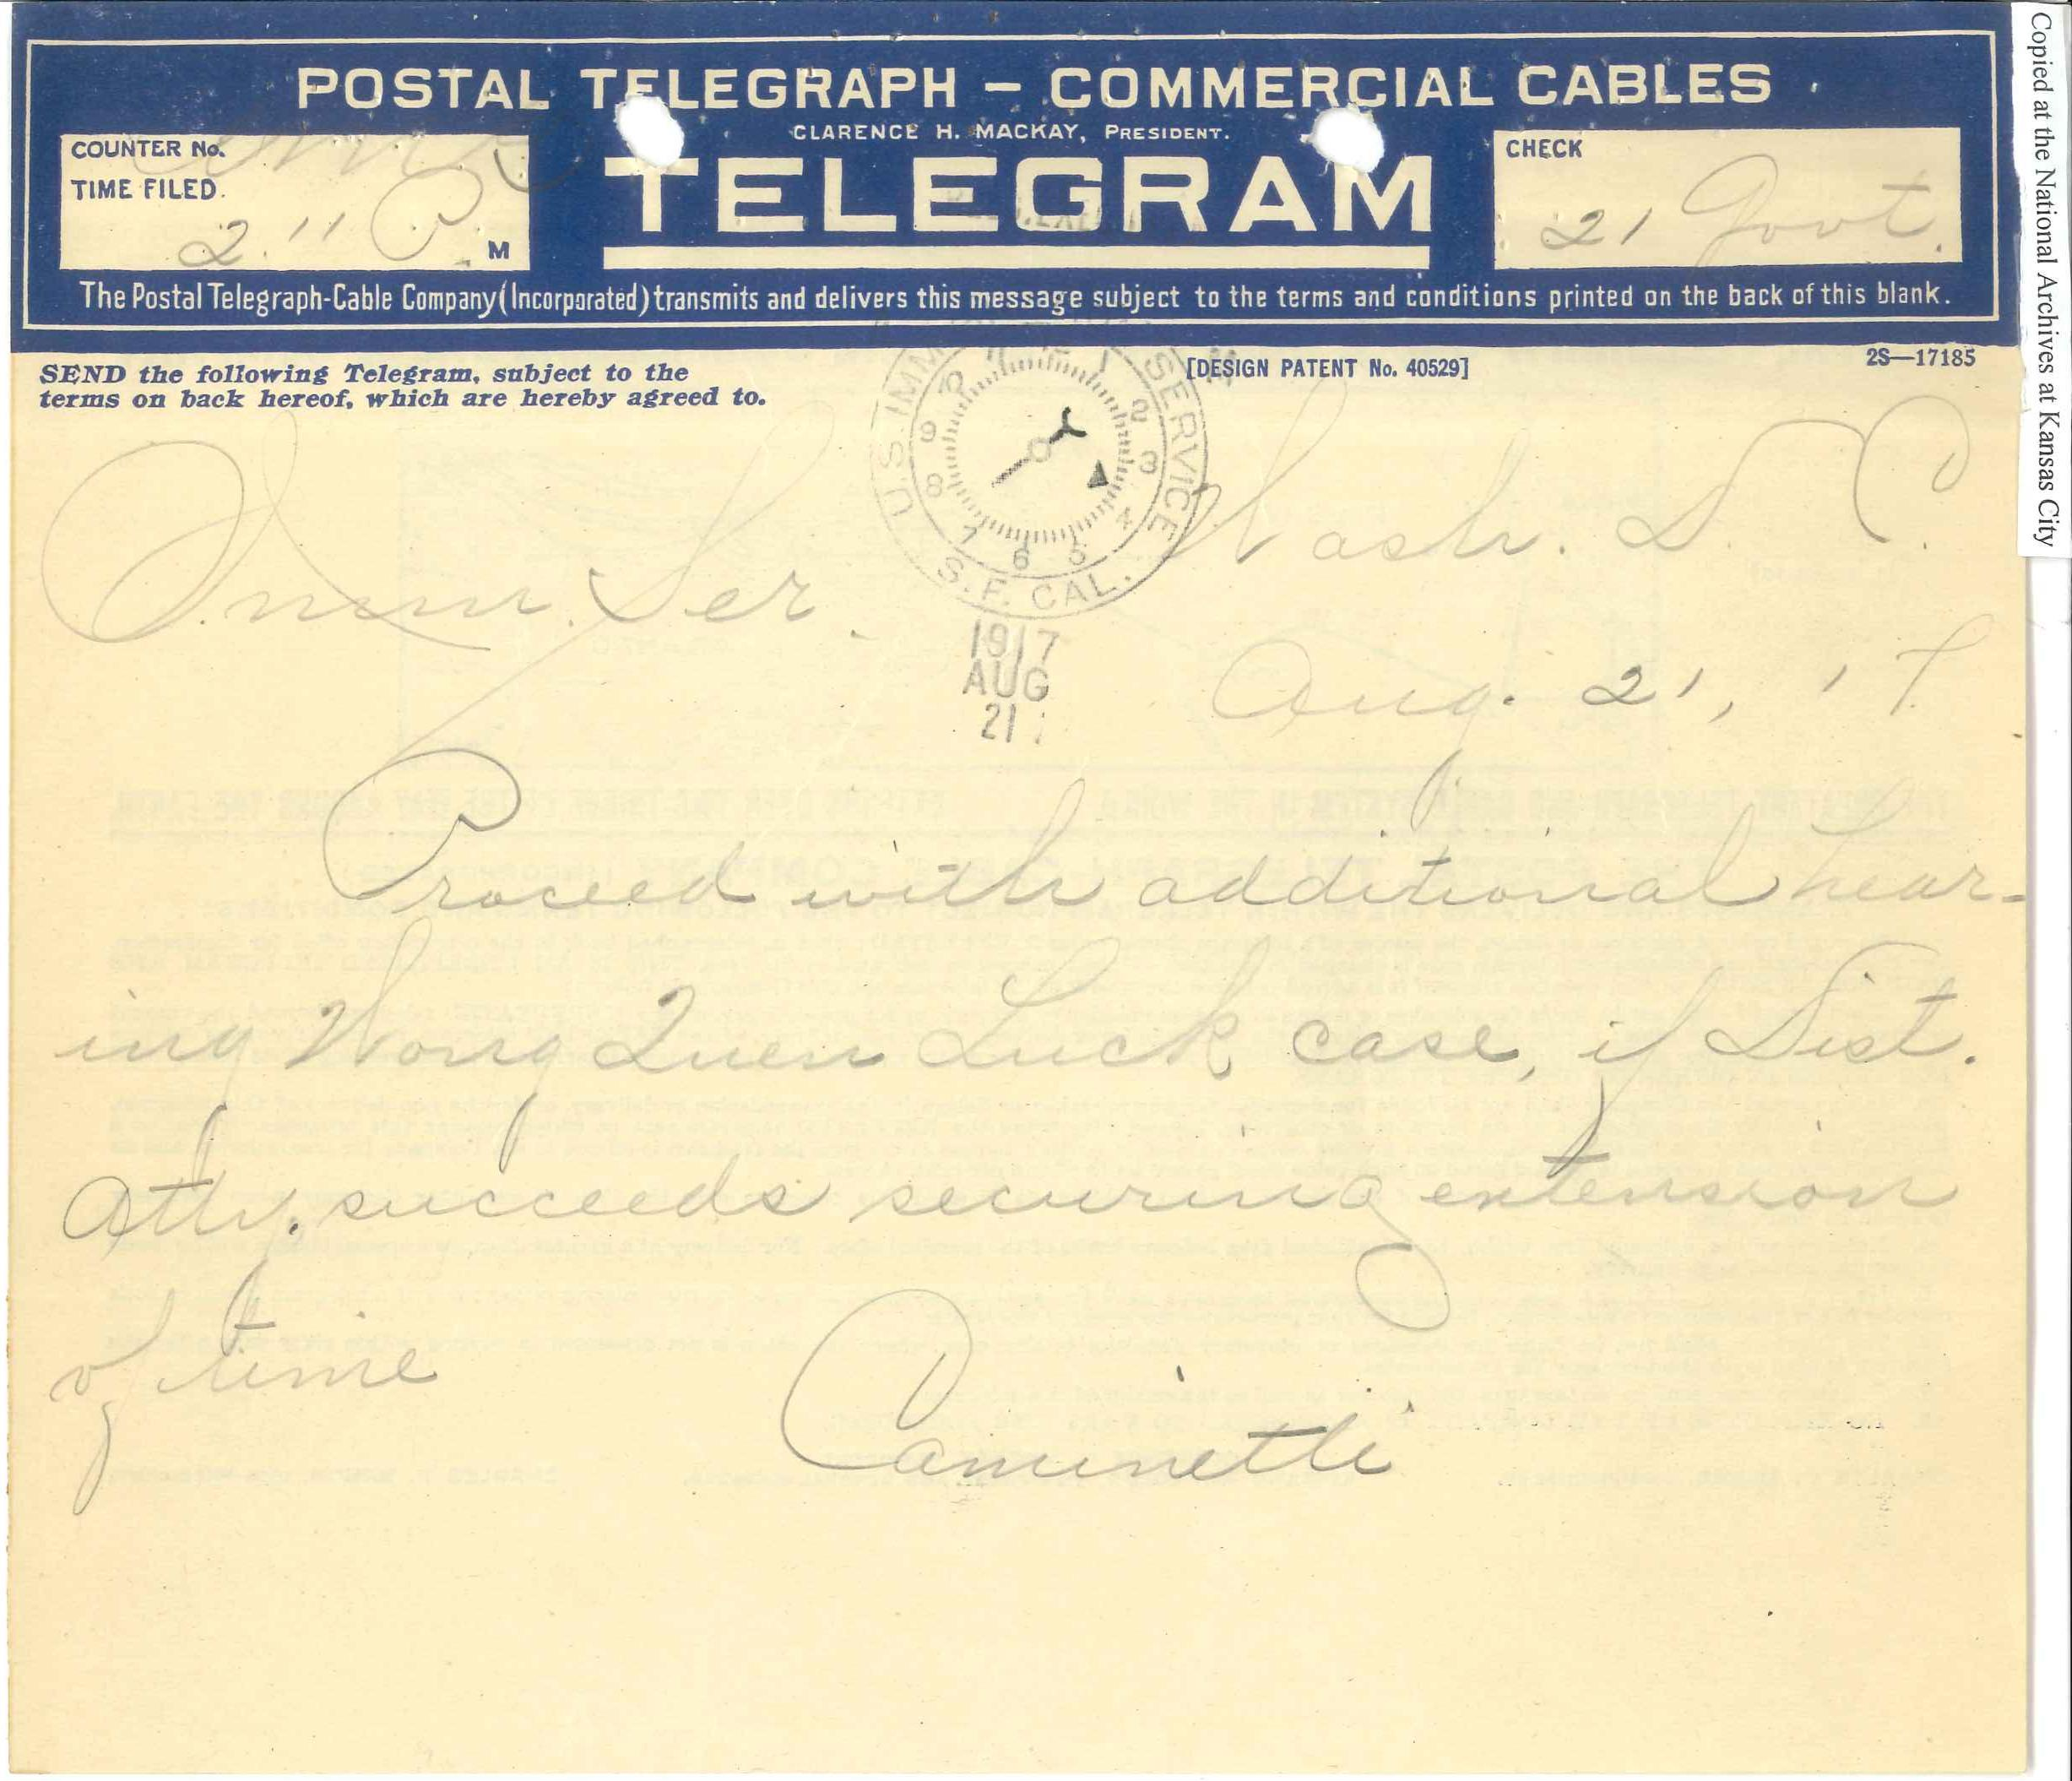 POSTAL TELEGRAPH – COMMERCIAL CABLES
CLARENCE H. MACKAY, PRESIDENT.
TELEGRAM
COUNTER No.
TIME FILED.
2 11 P M
CHECK
21 Govt.
The Postal Telegraph-Cable Company (Incorporated) transmits and delivers this message subject to the terms and conditions printed on the back of this blank.
SEND the following Telegram, subject to the
terms on back hereof, which are hereby agreed to.
[DESIGN PATENT No. 40529]
2S—17185
U.S. IMM SERVICE
S. F. CAL.
10 11 1 2 3 4 5 6 7 8 9
1917
AUG
21
Wash. D. C.
Imm. Ser.
Aug. 21, '17
Proceed with additional hear-
ing Wong Quen Luck case, if Dist.
Atty. succeeds securing extension
of time
Caminetti
Copied at the National Archives at Kansas City